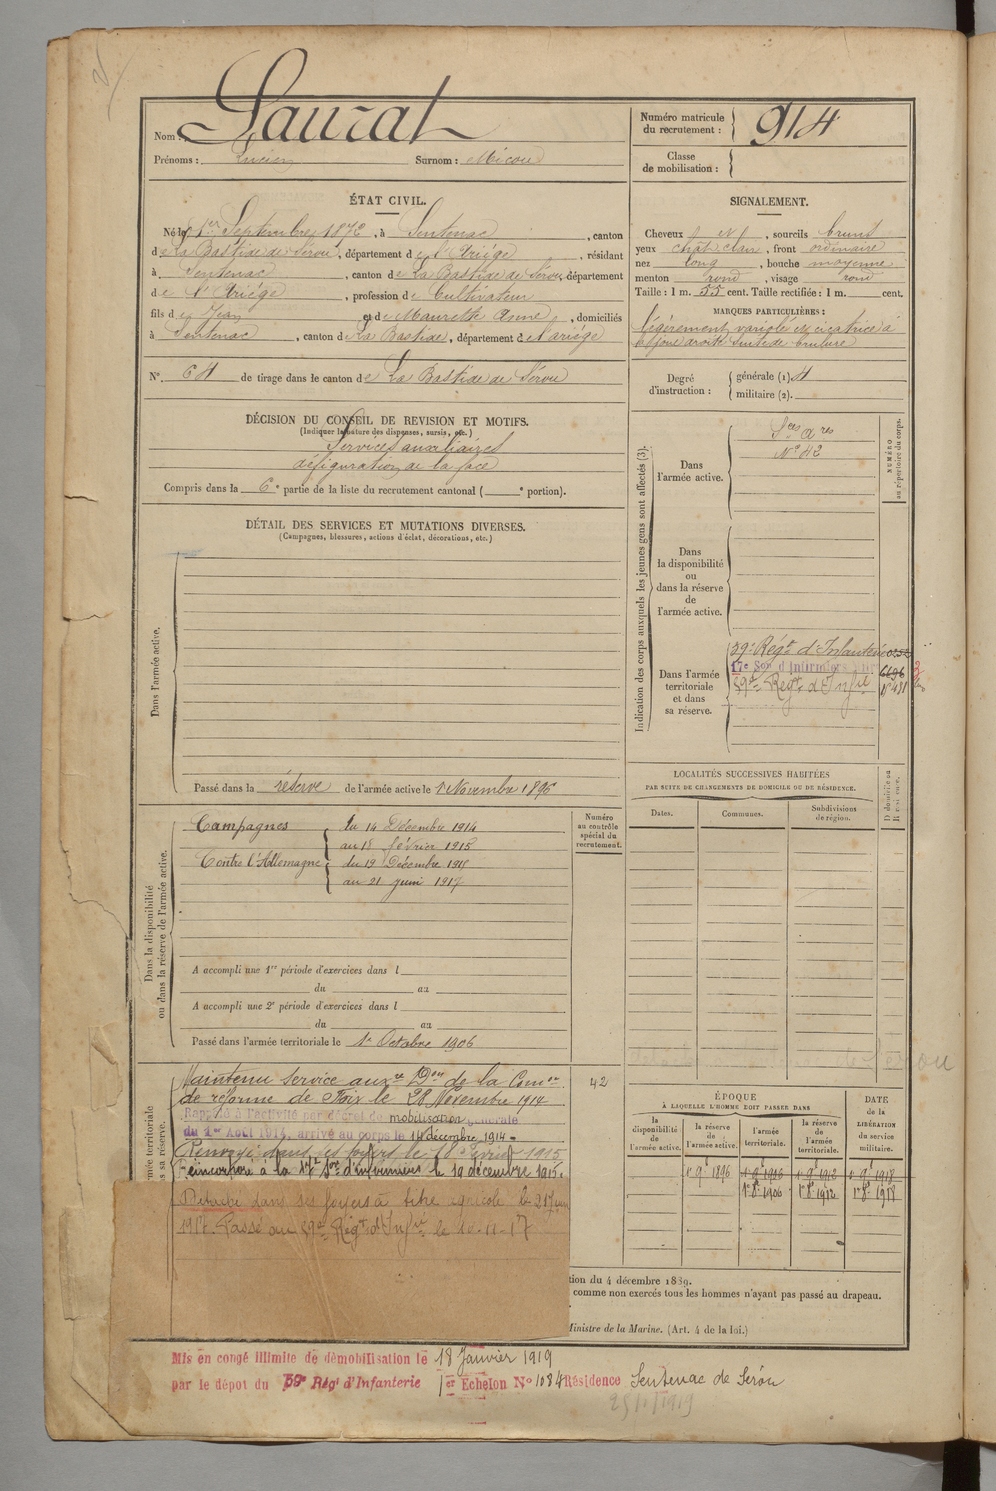 Nom : Laurat
Prénoms : Lucien Surnom : Micou
Numéro matricule du recrutement : 914
Classe de mobilisation :
ÉTAT CIVIL.
Né le 1er Septembre 1872, à Sentenac, canton
de La Bastide de Sérou, département de l'Ariège, résidant
à Sentenac, canton de La Bastide de Sérou, département
de l'Ariège, profession de Cultivateur
fils de Jean et de Maurette Anne, domiciliés
à Sentenac, canton de La Bastide, département de l'ariège
N° 64 de tirage dans le canton de La Bastide de Sérou
SIGNALEMENT.
Cheveux et, sourcils bruns
yeux chât. clair, front ordinaire
nez long, bouche moyenne
menton rond, visage rond
Taille : 1 m. 55 cent. Taille rectifiée : 1 m. cent.
MARQUES PARTICULIÈRES :
légèrement variolé et cicatrice à
la joue droite suite de brulure
Degré d'instruction : générale (1) 4
militaire (2).
DÉCISION DU CONSEIL DE REVISION ET MOTIFS.
(Indiquer la nature des dispenses, sursis, etc.)
Services auxiliaires
défiguration de la face
Compris dans la 6e partie de la liste du recrutement cantonal ( e portion).
DÉTAIL DES SERVICES ET MUTATIONS DIVERSES.
(Campagnes, blessures, actions d'éclat, décorations, etc.)
Dans l'armée active.
Passé dans la réserve de l'armée active le 1 Novembre 1896
Indication des corps auxquels les jeunes gens sont affectés (3).
NUMÉRO au répertoire du corps.
Dans l'armée active.
Sces ares
N° 42
Dans la disponibilité ou dans la réserve de l'armée active.
Dans l'armée territoriale et dans sa réserve.
59e Régt d'Infanterie
17e Son d'Infirmiers 6696
59e Régt d'Infie
LOCALITÉS SUCCESSIVES HABITÉES
PAR SUITE DE CHANGEMENTS DE DOMICILE OU DE RÉSIDENCE.
Dates. Communes. Subdivisions de région. D domicile ou R résidence.
Dans la disponibilité ou dans la réserve de l'armée active.
Numéro au contrôle spécial du recrutement.
Campagnes du 14 Décembre 1914
au 18 février 1915
Contre l'Allemagne du 19 Décembre 1915
au 21 juin 1917
A accompli une 1re période d'exercices dans l
du au
A accompli une 2e période d'exercices dans l
du au
Passé dans l'armée territoriale le 1er Octobre 1906
Maintenu service auxre Don de la Comon
de réforme de Foix le 28 Novembre 1914
42
Rappelé à l'activité par décret de mobilisation générale
du 1er Août 1914, arrivé au corps le 14 décembre 1914
Renvoyé dans ses foyers le 18 Février 1915
Réincorporé à la 17e Son d'infirmiers le 19 décembre 1915.
Détaché dans ses foyers à titre agricole le 21 juin
1917. Passé au 59e Régt d'Infie le 10-11-17
ÉPOQUE
À LAQUELLE L'HOMME DOIT PASSER DANS
la disponibilité de l'armée active. la réserve de l'armée active. l'armée territoriale. la réserve de l'armée territoriale.
DATE de la LIBÉRATION du service militaire.
1 9 1896 1 9 1906 1 9 1912 1 9 1918
1 8 1906 1 8 1912 1 8 1918
tion du 4 décembre 1889.
comme non exercés tous les hommes n'ayant pas passé au drapeau.
Ministre de la Marine. (Art. 4 de la loi.)
Mis en congé illimité de démobilisation le 18 Janvier 1919
par le dépôt du 59e Régt d'Infanterie 1er Echelon N° 1084 Résidence Sentenac de Sérou